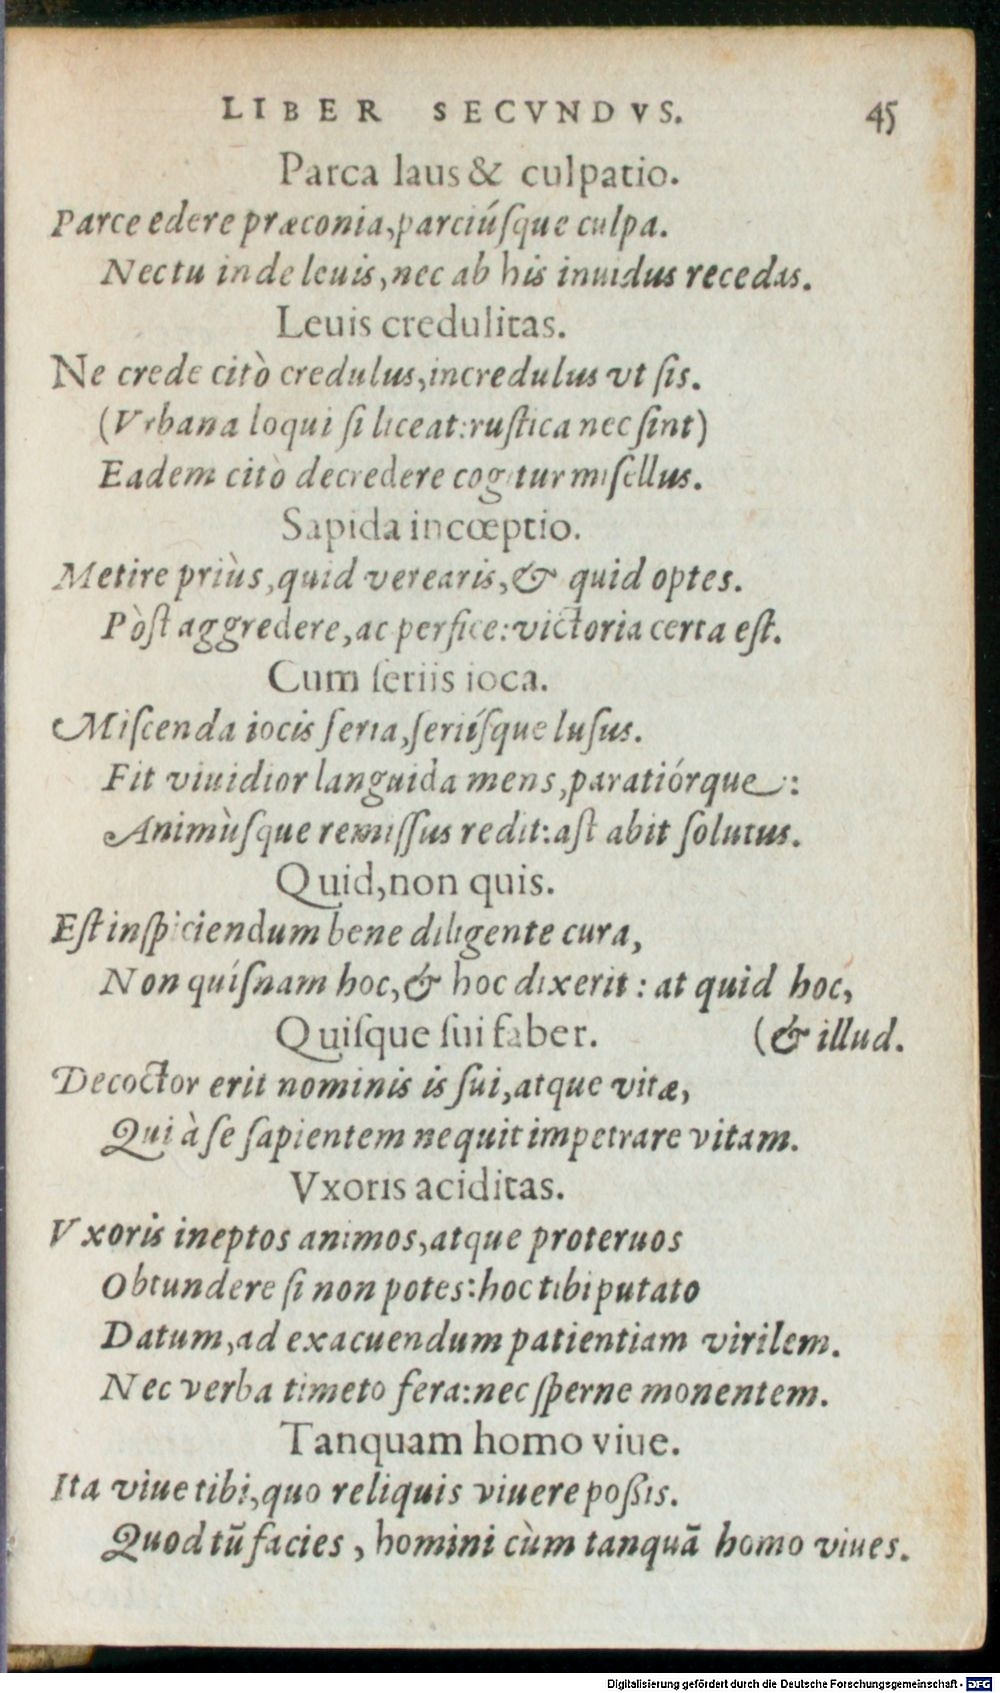 LIBER SECVNDVS. 45
Parca laus & culpatio.
Parce edere præconia, parciúſque culpa.
Nec tu inde leuis, nec ab his inuidus recedas.
Leuis credulitas.
Ne crede citò credulus, incredulus vt ſis.
(Vrbana loqui ſi liceat: ruſtica nec ſint)
Eadem citò decredere cogitur miſellus.
Sapida incœptio.
Metire priùs, quid verearis, & quid optes.
Pòſt aggredere, ac perfice: victoria certa eſt.
Cum ſeriis ioca.
Miſcenda iocis ſeria, ſeriíſque luſus.
Fit viuidior languida mens, paratiórque:
Animùſque remiſſus redit: aſt abit ſolutus.
Quid, non quis.
Eſt inſpiciendum bene diligente cura,
Non quíſnam hoc, & hoc dixerit: at quid hoc,
(& illud.
Quiſque ſui faber.
Decoctor erit nominis is ſui, atque vitæ,
Qui à ſe ſapientem nequit impetrare vitam.
Vxoris aciditas.
Vxoris ineptos animos, atque proteruos
Obtundere ſi non potes: hoc tibi putato
Datum, ad exacuendum patientiam virilem.
Nec verba timeto fera: nec ſperne monentem.
Tanquam homo viue.
Ita viue tibi, quo reliquis viuere poßis.
Quod tũ facies, homini cùm tanquã homo viues.
Digitalisierung gefördert durch die Deutsche Forschungsgemeinschaft - DFG